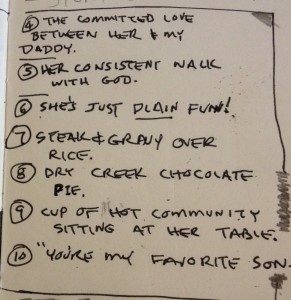 ④ THE COMMITTED LOVE
BETWEEN HER & MY
DADDY.
⑤ HER CONSISTENT WALK
WITH GOD.
⑥ SHE'S JUST PLAIN FUN!
⑦ STEAK & GRAVY OVER
RICE.
⑧ DRY CREEK CHOCOLATE
PIE.
⑨ CUP OF HOT COMMUNITY
SITTING AT HER TABLE.
⑩ "YOU'RE MY FAVORITE SON.